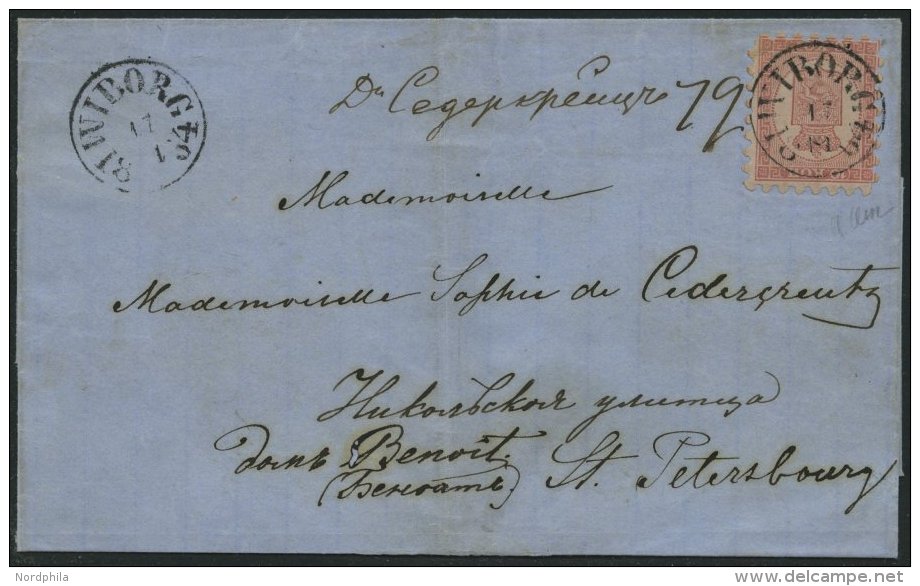 WIBORG
17
1
Дъ Седеркрейцъ 79
WIBORG
17
Mademoiselle
Mademoiselle Sophie de Cedercreutz
Никольская улитца
домъ Benoit.
(Беноатъ) St. Petersbourg
Nordphila
www.delcampe.net